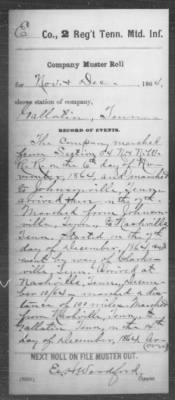 E Co., 2 Reg't Tenn. Mtd. Inf.
Company Muster Roll
for Nov. & Dec. 1864,
shows station of company,
Gallatin, Tenn.
RECORD OF EVENTS.
The Company marched
from Section 54 N & N.W.
R.R. the 6th day of No-
vember, 1864, and marched
to Johnsonville, Tenn.
arrived there on the 7th.
Marched from Johnson-
ville, Tenn. to Nashville,
Tenn. Started on the
day of November, 1864, and
went by way of Clarks-
ville, Tenn. Arrived at
Nashville, Tenn., December
1864, marched a dis-
tance of 100 miles. Marched
from Nashville, Tenn. to
Gallatin, Tenn. on the 14th
day of December, 1864.
NEXT ROLL ON FILE MUSTER OUT.
Woodford
Copyist.